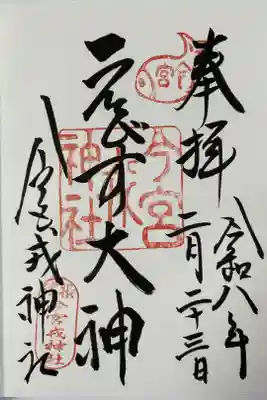 奉拝
令和八年
二月二十三日
今宮
ゑびす大神
今宮戎神社
今宮戎神社
今宮戎神社